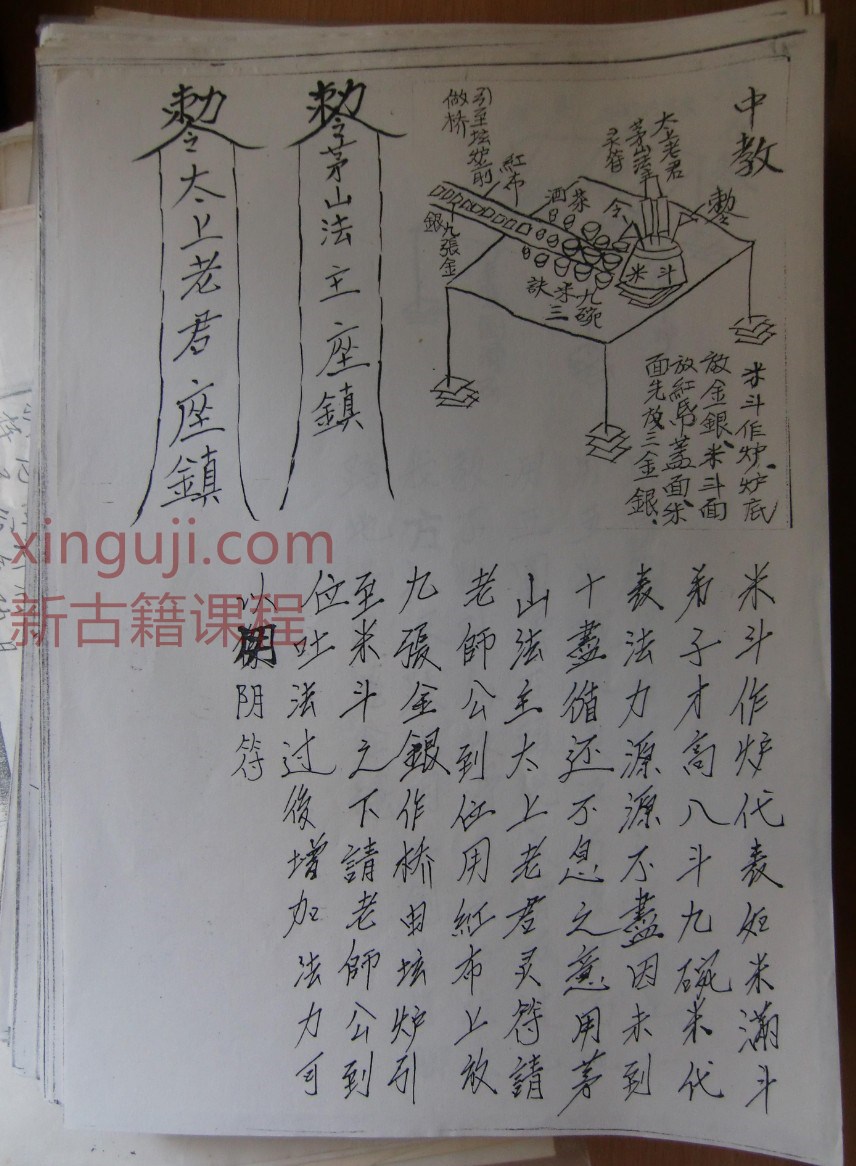 中教
太上老君
茅山法主
灵符
敕令
令
米斗
茶
酒
九碗
米三
訣
紅布
引至坛炉前
做桥
九張金
銀
米斗作炉、炉底
放金銀、米斗面
放紅帋蓋面、米
面先放三金銀、
敕令茅山法主座鎮
敕令太上老君座鎮
米斗作炉代表如米滿斗
弟子才高八斗九碗米代
表法力源源不盡因未到
十盡循还不息之意用茅
山法主太上老君灵符請
老師公到位用紅布上放
九張金銀作桥由坛炉引
至米斗之下請老師公到
位吐法过後增加法力可
以阴符
xinguji.com
新古籍课程